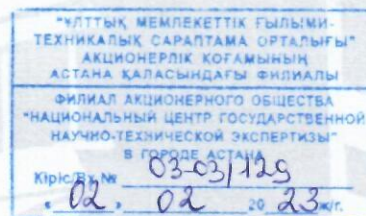 "ҰЛТТЫҚ МЕМЛЕКЕТТІК ҒЫЛЫМИ-
ТЕХНИКАЛЫҚ САРАПТАМА ОРТАЛЫҒЫ"
АКЦИОНЕРЛІК ҚОҒАМЫНЫҢ
АСТАНА ҚАЛАСЫНДАҒЫ ФИЛИАЛЫ
ФИЛИАЛ АКЦИОНЕРНОГО ОБЩЕСТВА
"НАЦИОНАЛЬНЫЙ ЦЕНТР ГОСУДАРСТВЕННОЙ
НАУЧНО-ТЕХНИЧЕСКОЙ ЭКСПЕРТИЗЫ"
В ГОРОДЕ АСТАНА
Кіріс/Вх.№ 03-03/129
« 02 » 02 20 23 ж/г.